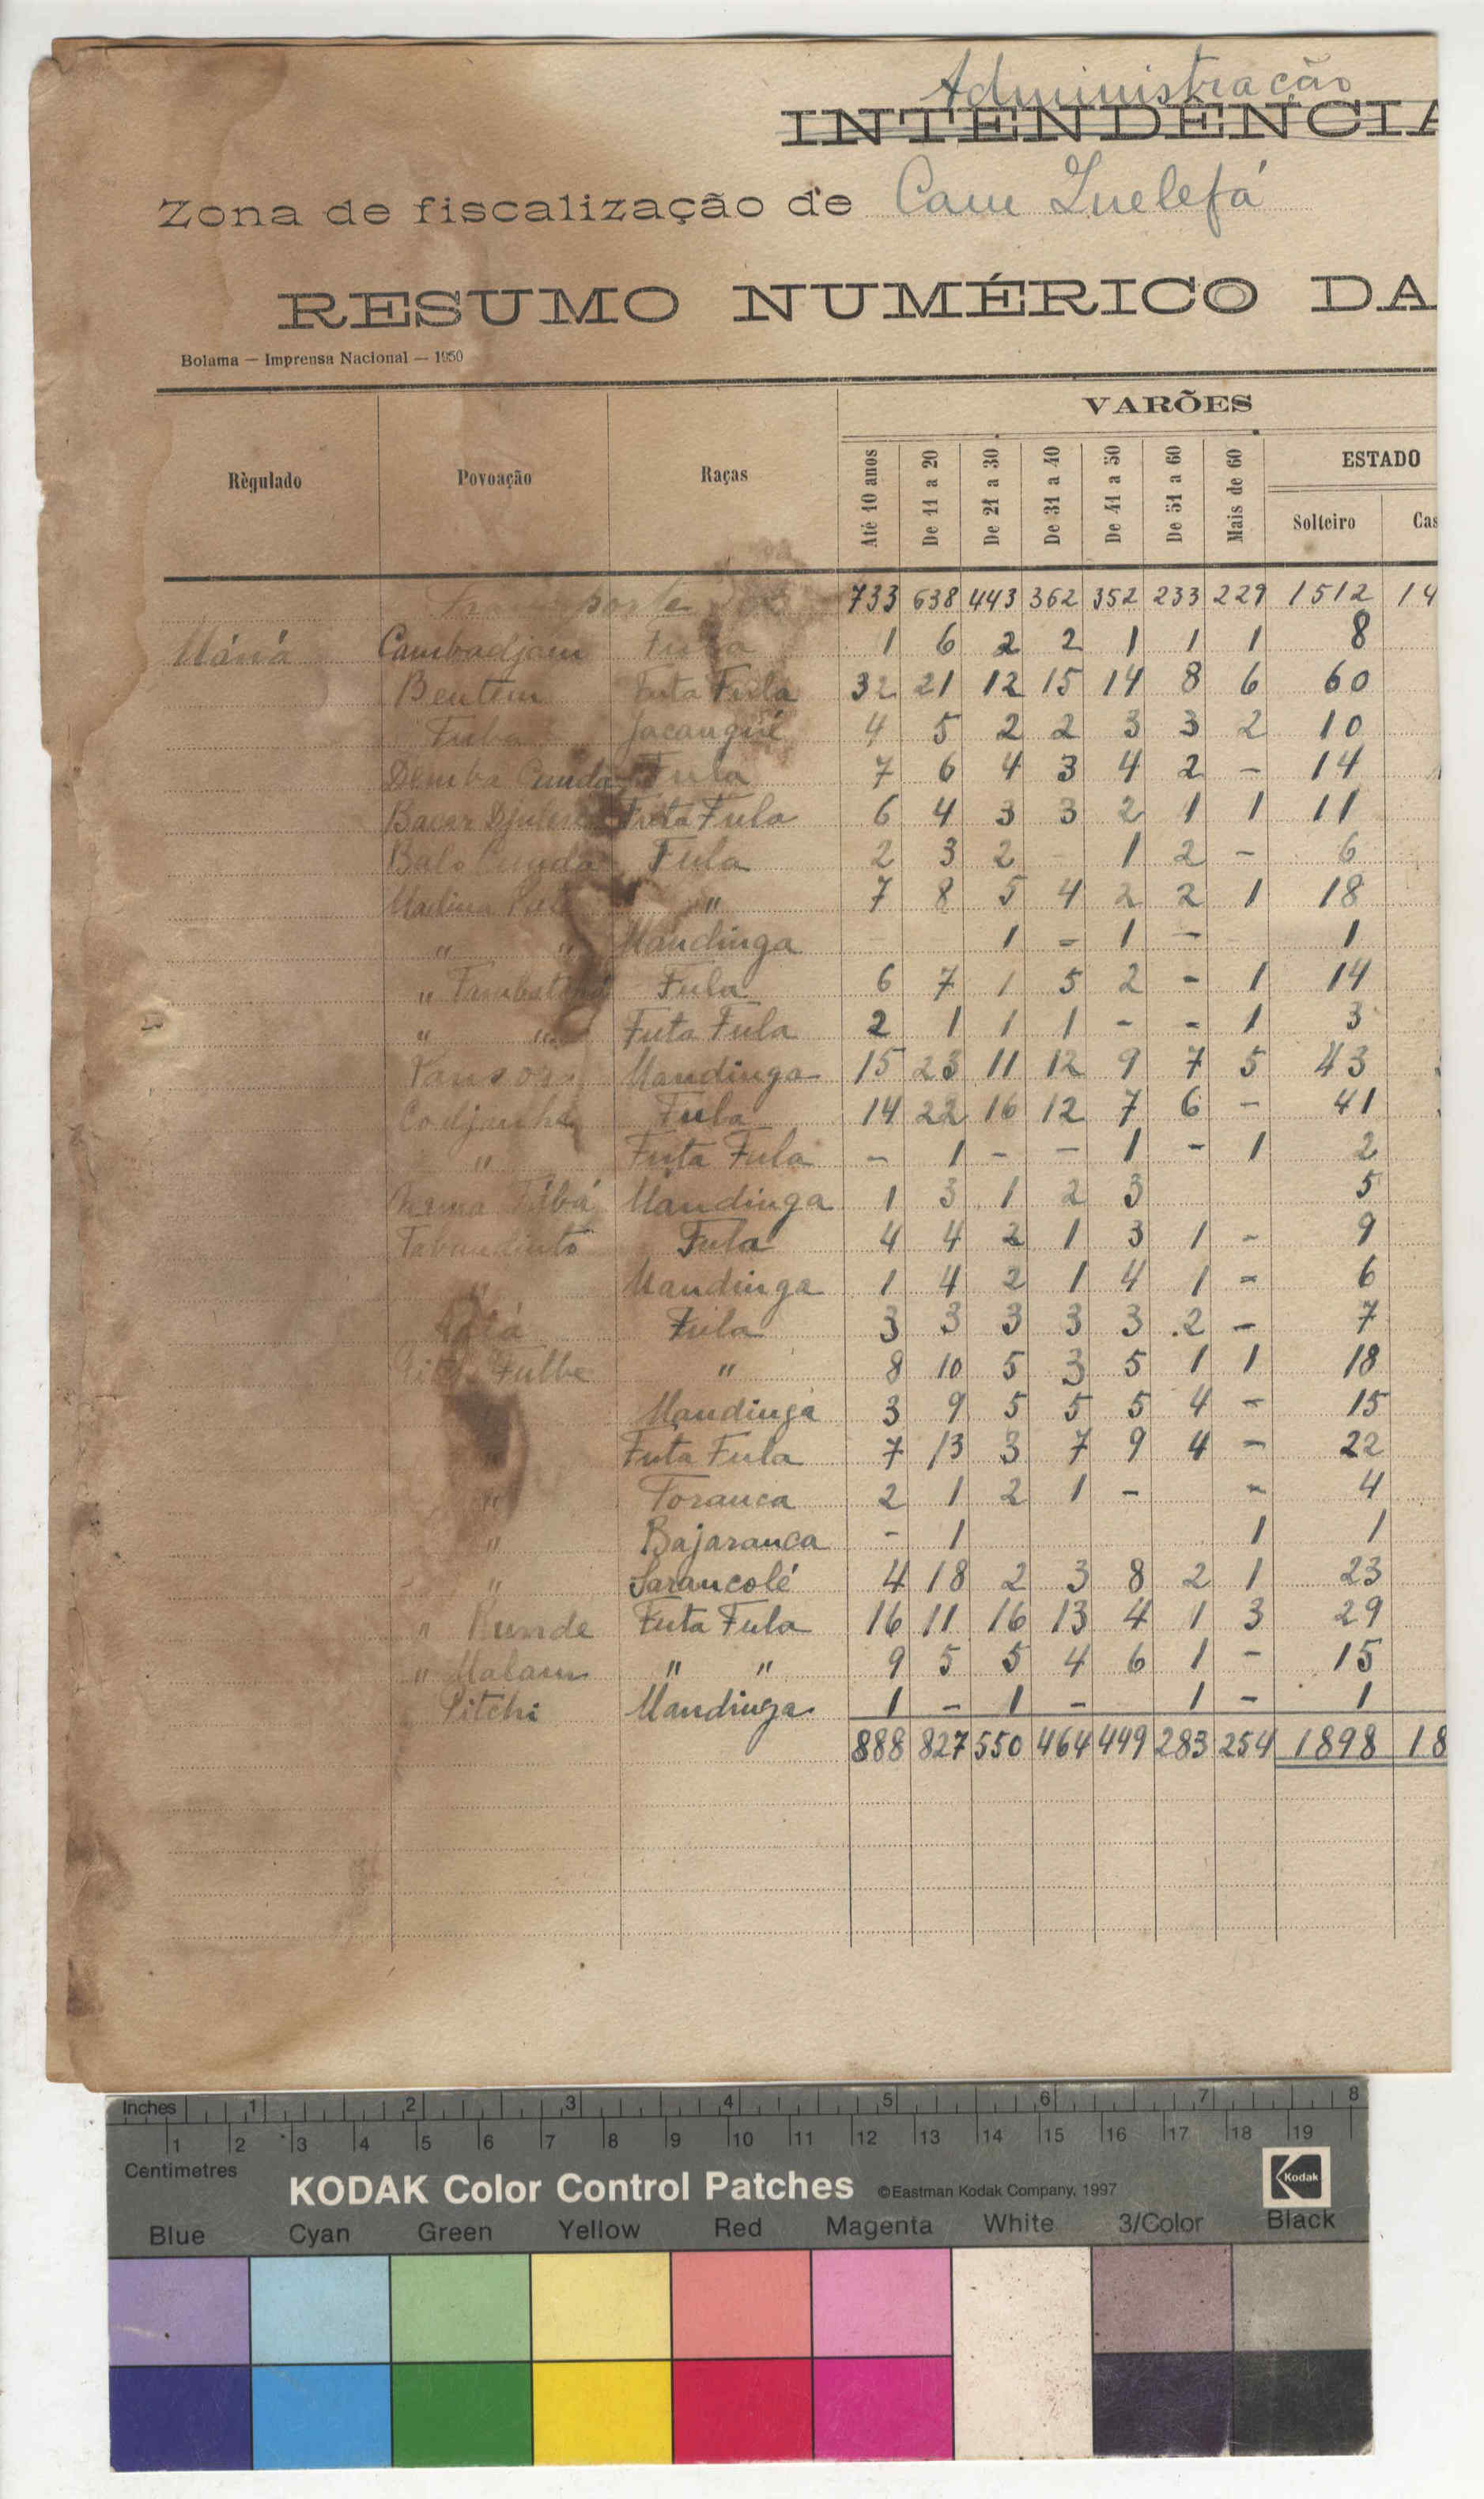 Administração
INTENDÊNCIA
Zona de fiscalização de Cam Quelefá
RESUMO NUMÉRICO DA
Bolama — Imprensa Nacional — 1950
VARÕES
Règulado Povoação Raças Até 10 anos De 11 a 20 De 21 a 30 De 31 a 40 De 41 a 50 De 51 a 60 Mais de 60 ESTADO
Solteiro Cas
Transporte 733 638 443 362 352 233 229 1512 14
Máná Cambadjam Fula 1 6 2 2 1 1 1 8
Bentem Futa Fula 32 21 12 15 14 8 6 60
Fula Jacanqué 4 5 2 2 3 3 2 10
Demba Cunda Fula 7 6 4 3 4 2 - 14
Bacar Futa Fula 6 4 3 3 2 1 1 11
Balo Cunda Fula 2 3 2 - 1 2 - 6
Madina " 7 8 5 4 2 2 1 18
" " Mandinga 1 - 1 - 1
" Fula 6 7 1 5 2 - 1 14
" " Futa Fula 2 1 1 1 - - 1 3
Mandinga 15 23 11 12 9 7 5 43
Fula 14 22 16 12 7 6 - 41
" Futa Fula - 1 - - 1 - 1 2
Mandinga 1 3 1 2 3 5
Fula 4 4 2 1 3 1 - 9
" Mandinga 1 4 2 1 4 1 - 6
Fula 3 3 3 3 3 2 - 7
Fulbe " 8 10 5 3 5 1 1 18
Mandinga 3 9 5 5 5 4 - 15
" Futa Fula 7 13 3 7 9 4 - 22
" Toranca 2 1 2 1 - - 4
" Bajaranca - 1 1 1
" Sarancolé 4 18 2 3 8 2 1 23
" Runde Futa Fula 16 11 16 13 4 1 3 29
" Malam " " 9 5 5 4 6 1 - 15
Pitche Mandinga 1 - 1 - 1 - 1
888 827 550 464 449 283 254 1898 18
Inches 1 2 3 4 5 6 7 8
1 2 3 4 5 6 7 8 9 10 11 12 13 14 15 16 17 18 19
Centimetres
KODAK Color Control Patches ©Eastman Kodak Company, 1997 Kodak
Blue Cyan Green Yellow Red Magenta White 3/Color Black